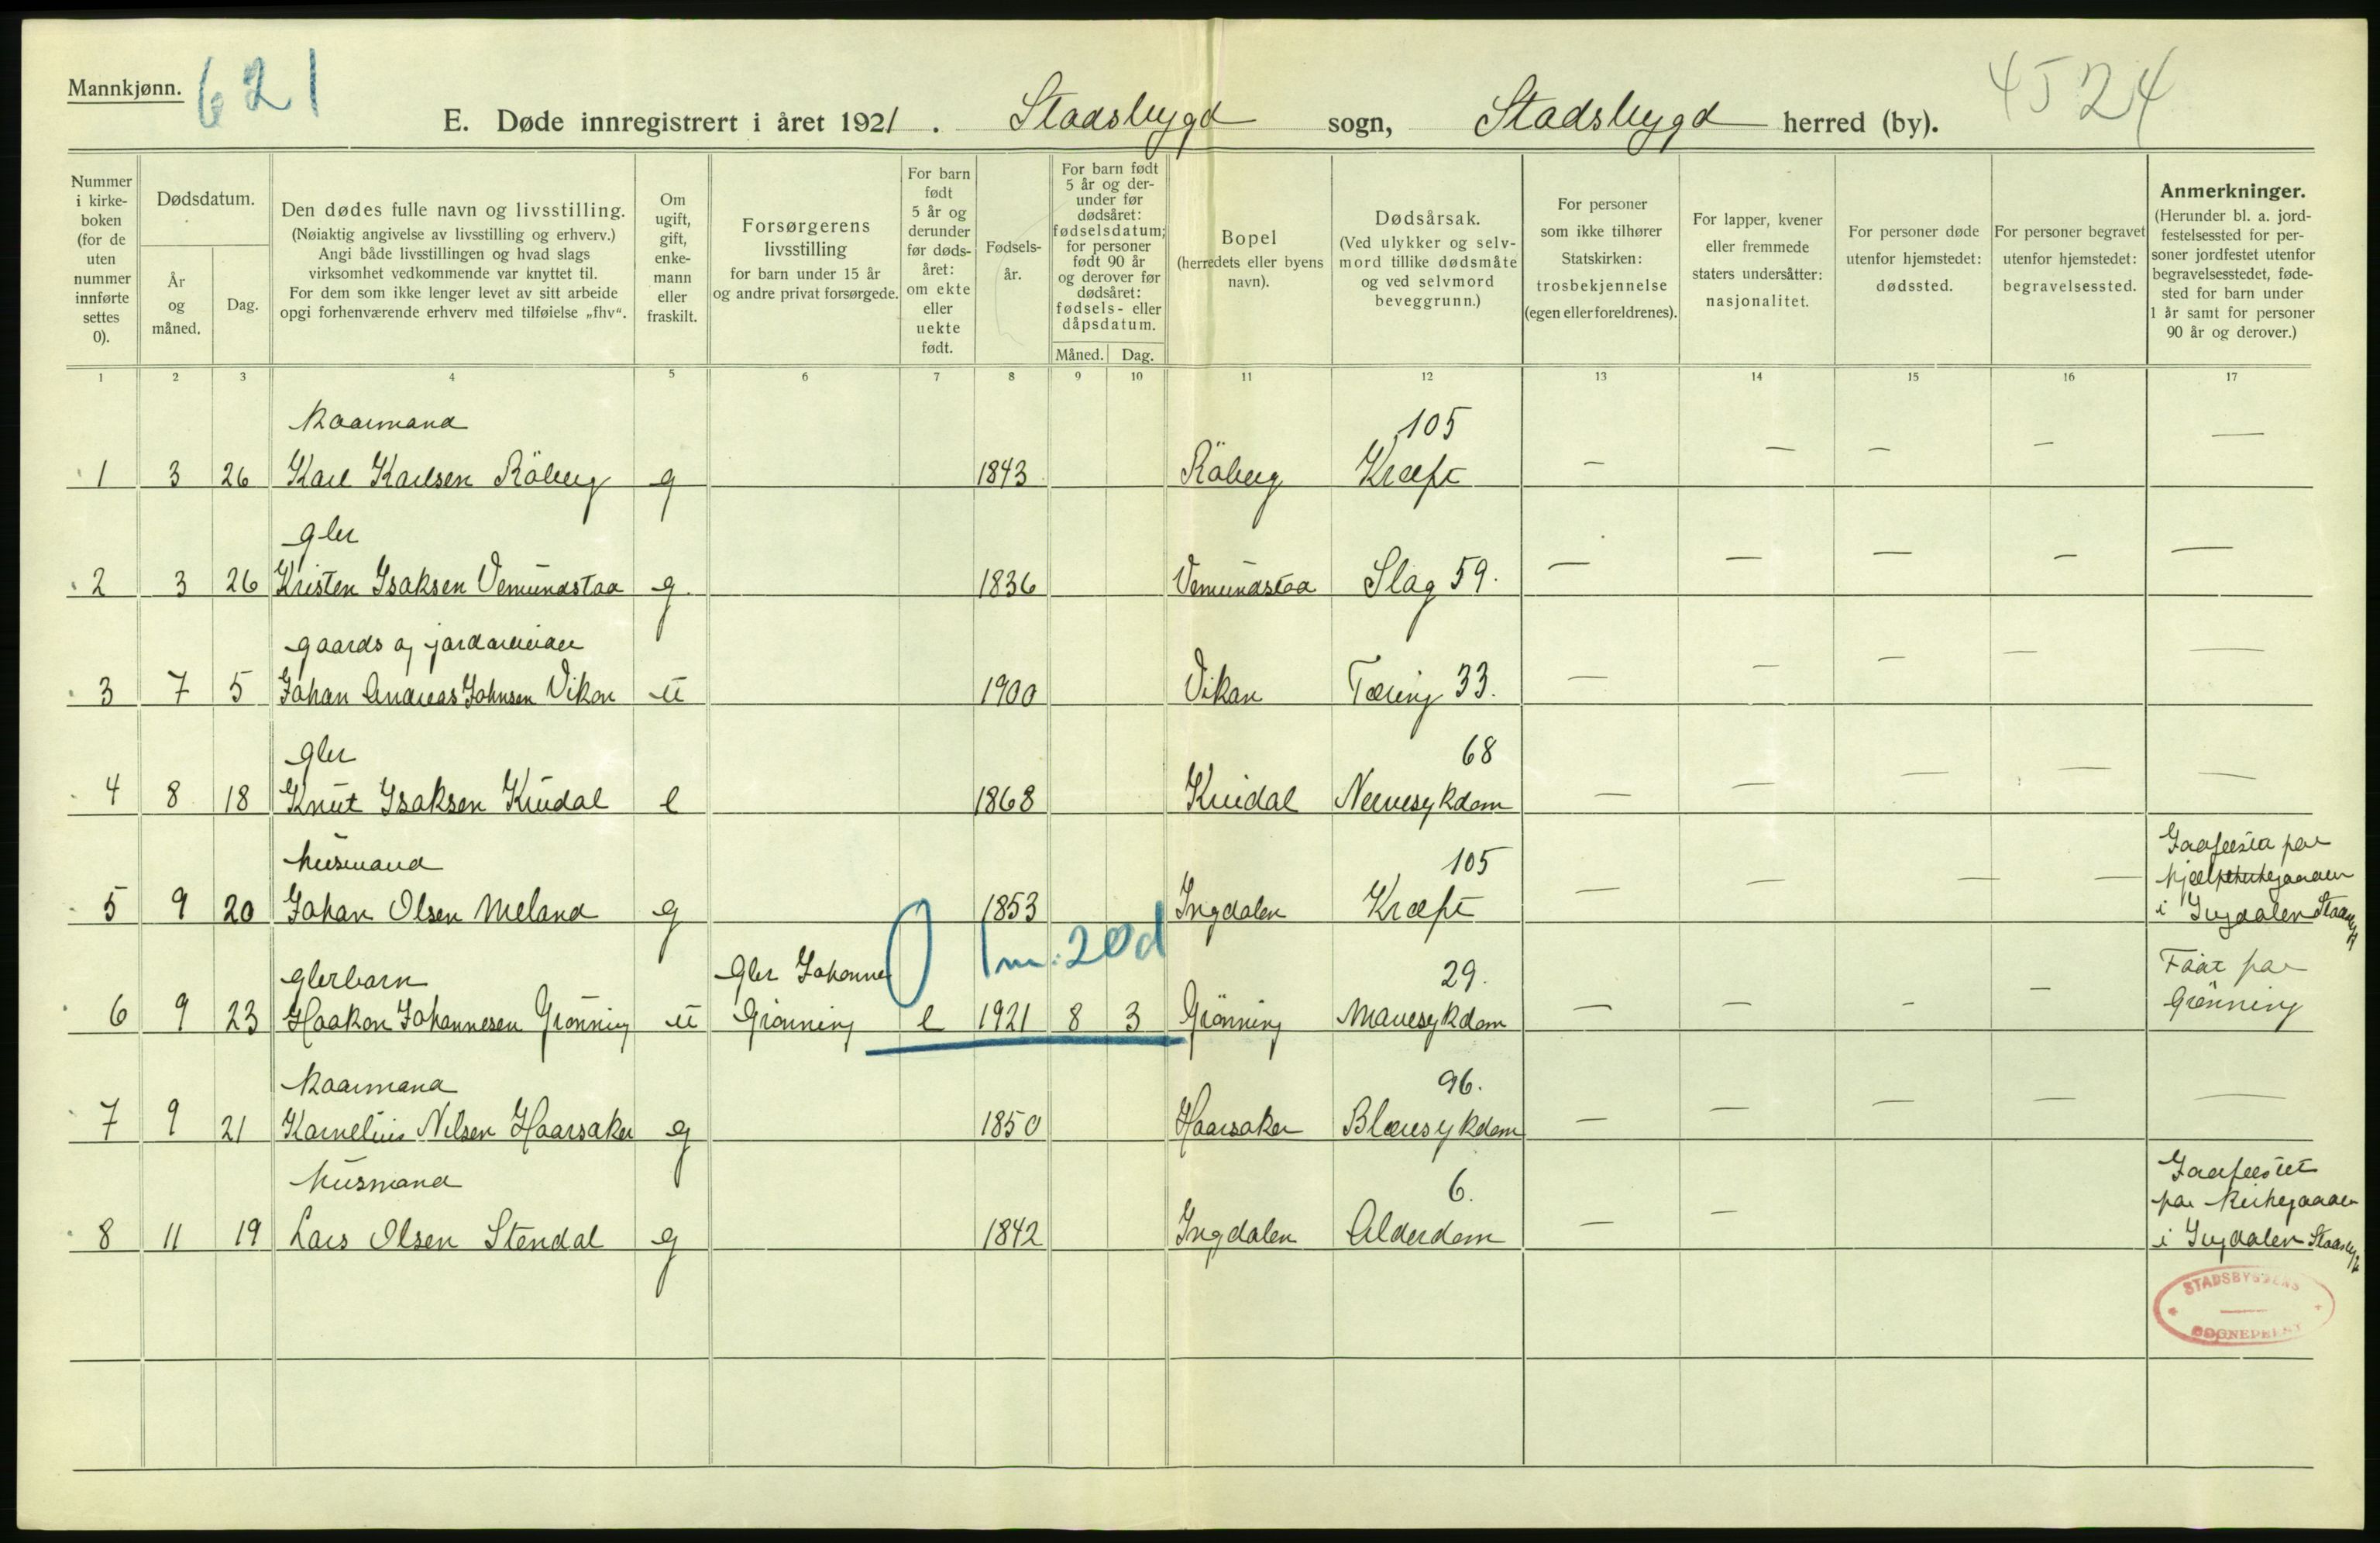 Mannkjønn.
621
4524
E. Døde innregistrert i året 1921. Stadsbygd sogn, Stadsbygd herred (by).
Nummer i kirke- boken (for de uten nummer innførte settes 0).
Dødsdatum.
År og måned.
Dag.
Den dødes fulle navn og livsstilling.
(Nøiaktig angivelse av livsstilling og erhverv.)
Angi både livsstillingen og hvad slags
virksomhet vedkommende var knyttet til.
For dem som ikke lenger levet av sitt arbeide
opgi forhenværende erhverv med tilføielse „fhv“.
Om ugift, gift, enke- mann eller fraskilt.
Forsørgerens livsstilling
for barn under 15 år
og andre privat forsørgede.
For barn født 5 år og derunder før døds- året: om ekte eller uekte født.
Fødsels- år.
For barn født 5 år og der- under før dødsåret: fødselsdatum; for personer født 90 år og derover før dødsåret: fødsels- eller dåpsdatum.
Måned. Dag.
Bopel
(herredets eller byens navn).
Dødsårsak.
(Ved ulykker og selv- mord tillike dødsmåte og ved selvmord beveggrunn.)
For personer som ikke tilhører Statskirken: trosbekjennelse (egen eller foreldrenes).
For lapper, kvener eller fremmede staters undersåtter: nasjonalitet.
For personer døde utenfor hjemstedet: dødssted.
For personer begravet utenfor hjemstedet: begravelsessted.
Anmerkninger.
(Herunder bl. a. jord- festelsessted for per- soner jordfestet utenfor begravelsesstedet, føde- sted for barn under 1 år samt for personer 90 år og derover.)
1 2 3 4 5 6 7 8 9 10 11 12 13 14 15 16 17
Kaarmand 105
1 3 26 Karl Karlsen Råberg g 1843 Råberg Kræft — — — — —
gbr
2 3 26 Kristen Isaksen Vemundstad g. 1836 Vemundstad Slag 59. — — — — —
gaards og jordarbeider
3 7 5 Johan Andreas Johnsen Vikan u 1900 Vikan Tæring 33. — — — — —
gbr 68
4 8 18 Knut Isaksen Kindal e 1868 Kindal Nervesykdom — — — — —
husmand 105
5 9 20 Johan Olsen Meland g 1853 Ingdalen Kræft — — — —
i Ingdalen
1 m. 20 d
gbrbarn Gbr Johannes 29.
6 9 23 Haakon Johannesen Grønning u Grønning e 1921 8 3 Grønning Mavesykdom — — — — Født paa Grønning
Kaarmand 96.
7 9 21 Kornelius Nilsen Haarsaker g 1850 Haarsaker Blæresykdom — — — — —
husmand 6.
8 11 19 Lars Olsen Stendal g 1842 Ingdalen Alderdom — —
Jordfestet
paa Kirkegaarden
i Ingdalen Stadsbygd
STADSBYGDENS
SOGNEPREST